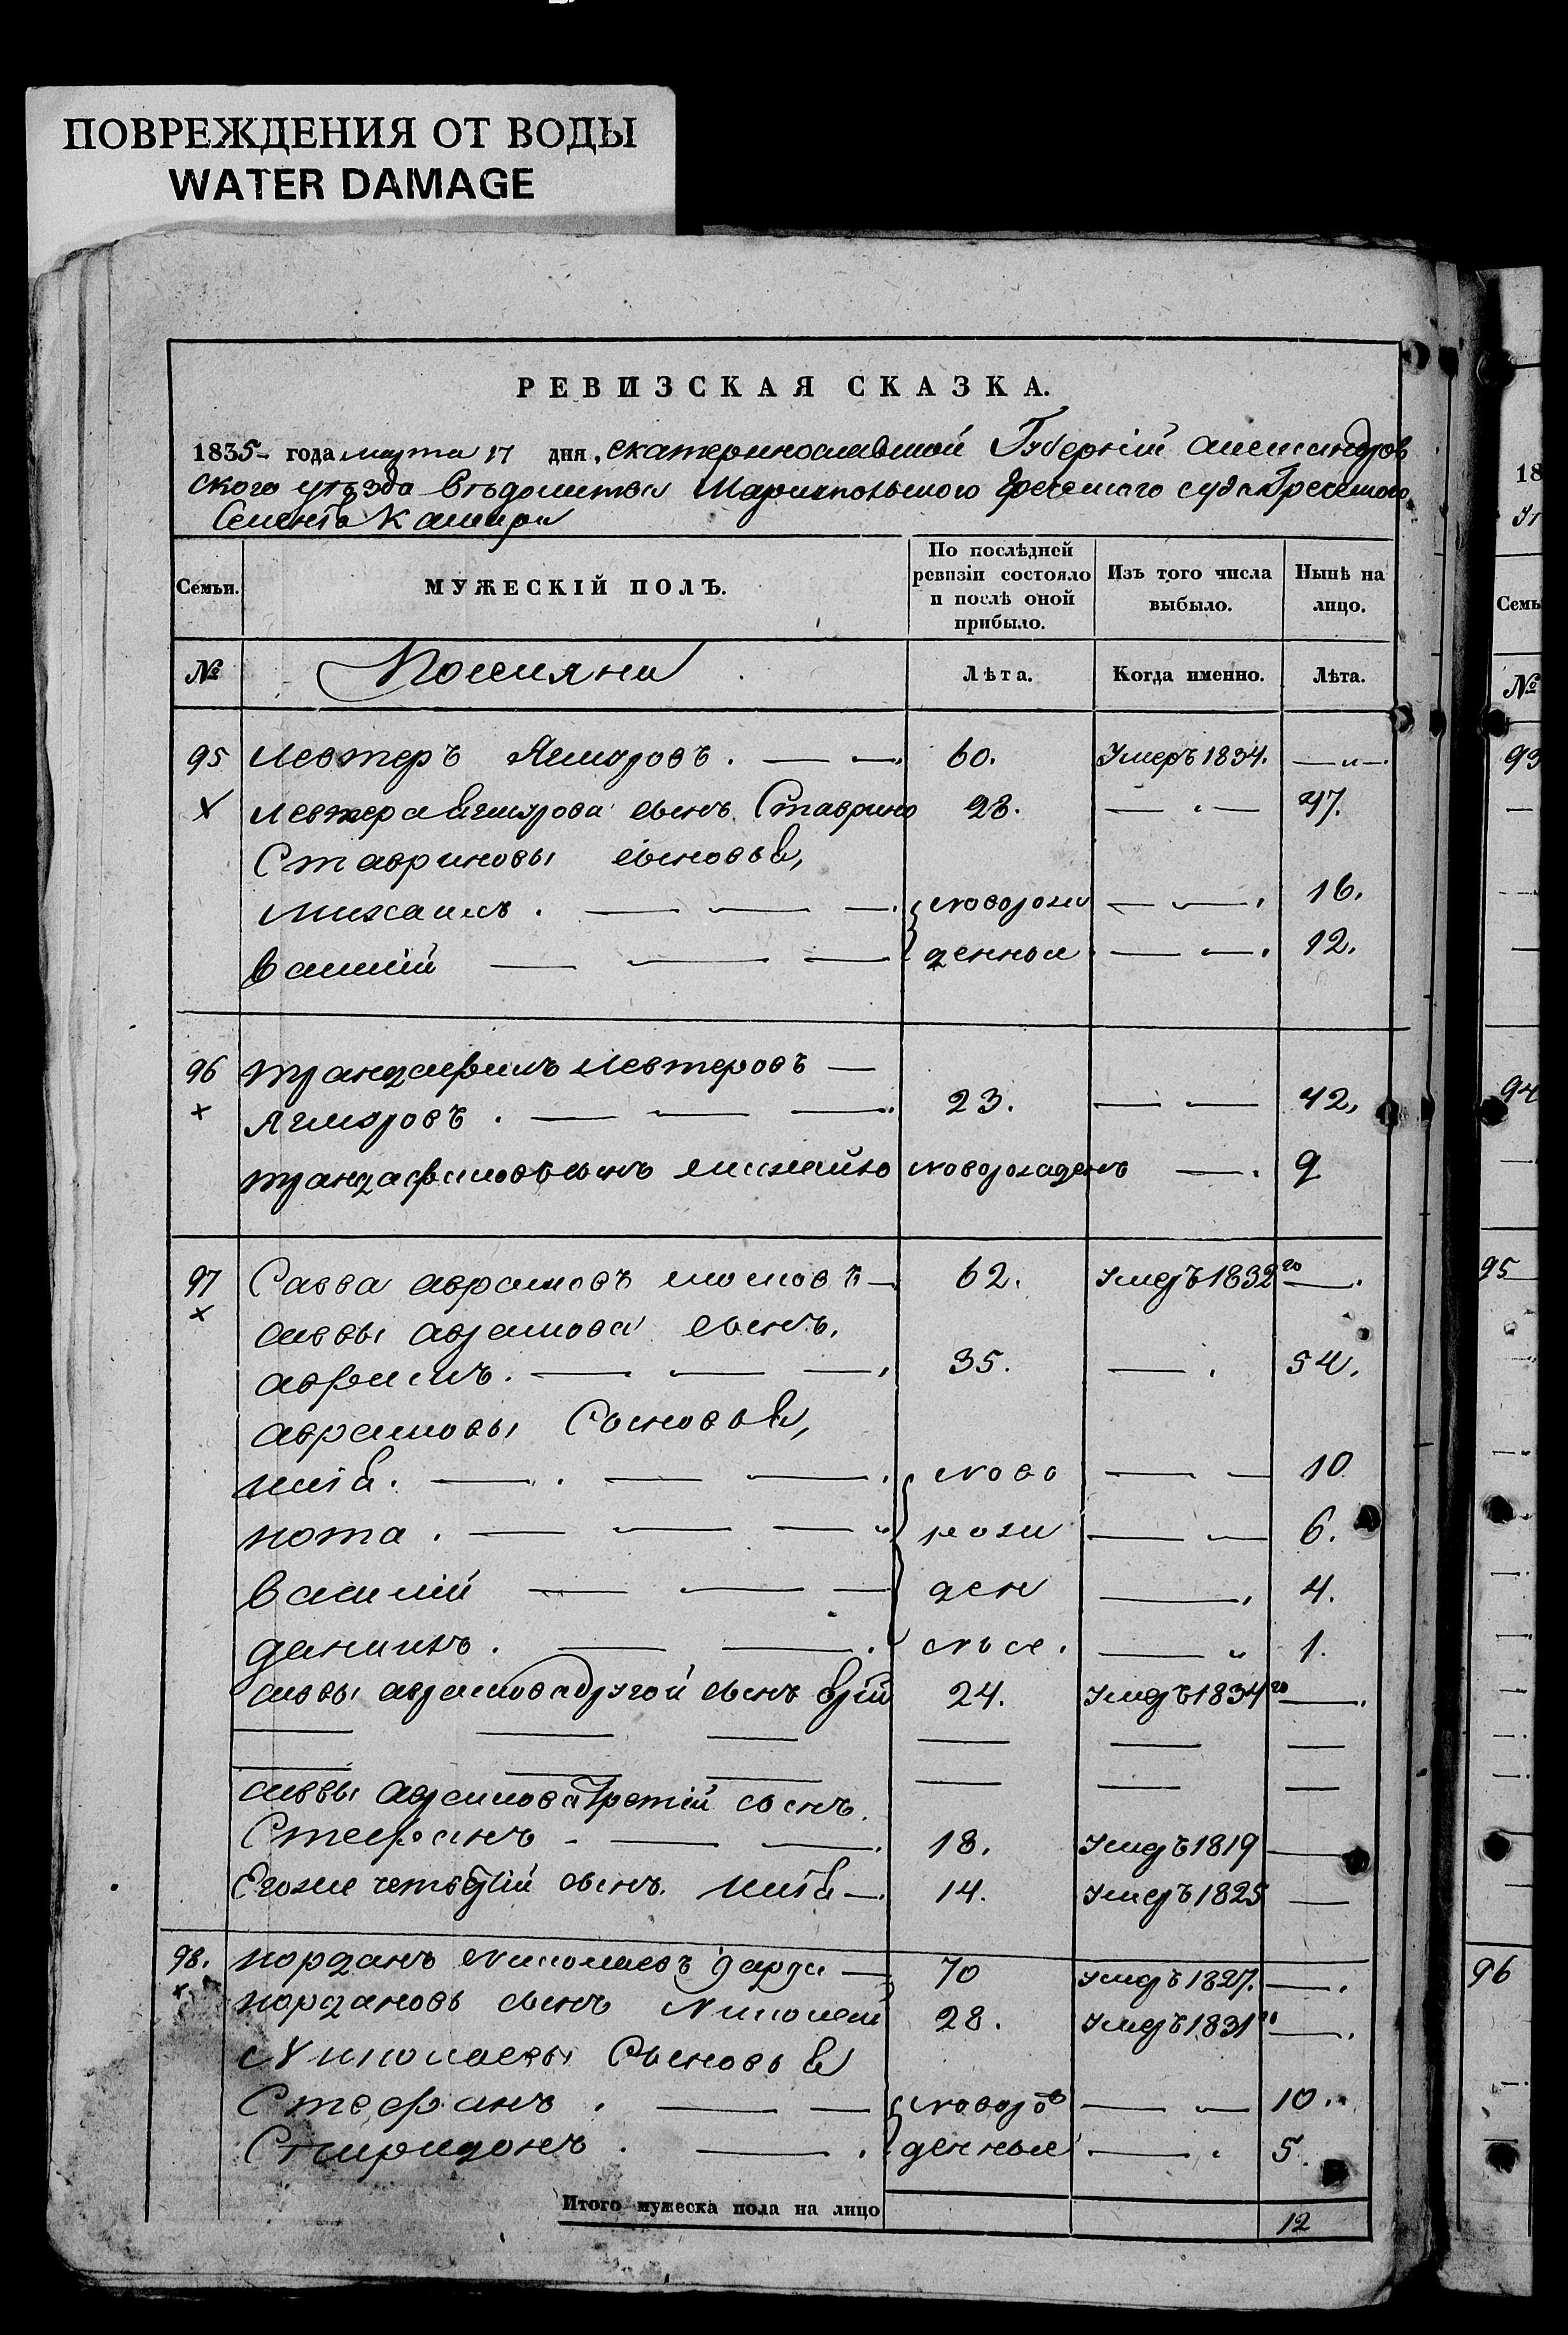 ПОВРЕЖДЕНИЯ ОТ ВОДЫ
WATER DAMAGE
РЕВИЗСКАЯ СКАЗКА.
1835 года марта 17 дня, екатеринославской Губернiи александров
ского уѣзда вѣдомства Марiупольского греческаго суда Греческого
Селенiя
Семьи.
МУЖЕСКIЙ ПОЛЪ.
По послѣдней ревизiи состояло и послѣ оной прибыло.
Изъ того числа выбыло.
Нынѣ на лицо.
№
Поселяни
Лѣта.
Когда именно.
Лѣта.
95 Левтеръ 60. Умеръ 1834.
Левтера сынъ Ставрино 28. 47.
Ставриновы сыновья,
Михаилъ. новорож 16.
Василiй денныя 12.
96 трандафилъ Левтеровъ
23. 42.
трандафиловъ сынъ михайло новорожденъ 9
97 Савва аврамовъ 62. Умеръ 1832го
саввы аврамова сынъ,
аврамъ. 35. 54.
аврамовы Сыновья,
илiя. ново 10
кота. рож 6.
василiй ден 4.
данилъ. ныя. 1.
саввы аврамова другой сынъ 24. Умеръ 1834го
саввы аврамова Третiй сынъ.
Стефанъ 18. Умеръ 1819
Егоже четвертiй сынъ илiя 14. Умеръ 1825
98. иорданъ Николаевъ 70 Умеръ 1827.
иордановъ сынъ Николай 28. Умеръ 1831го
Николаевы Сыновья
Стефанъ. новорож 10.
Спиридонъ. денныя 5.
Итого мужеска пола на лицо 12
18
Семь
№
93
94
95
96